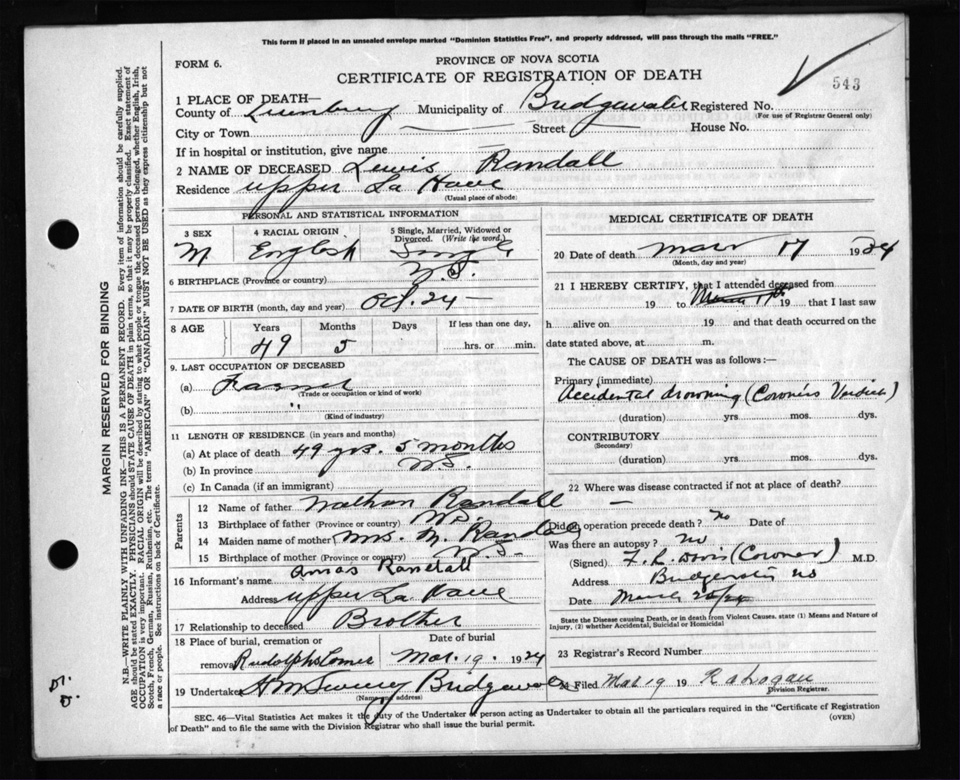 This form if placed in an unsealed envelope marked "Dominion Statistics Free", and properly addressed, will pass through the mails "FREE."
FORM 6.
PROVINCE OF NOVA SCOTIA
CERTIFICATE OF REGISTRATION OF DEATH
543
1 PLACE OF DEATH—
County of Lunenburg Municipality of Bridgewater Registered No.
(For use of Registrar General only)
City or Town Street House No.
If in hospital or institution, give name
2 NAME OF DECEASED Lewis Randall
Residence Upper La Have
(Usual place of abode)
PERSONAL AND STATISTICAL INFORMATION
3 SEX 4 RACIAL ORIGIN 5 Single, Married, Widowed or Divorced. (Write the word.)
M English Single
6 BIRTHPLACE (Province or country) N.S.
7 DATE OF BIRTH (month, day and year) Oct. 24 —
8 AGE Years Months Days If less than one day,
49 5 hrs. or min.
9. LAST OCCUPATION OF DECEASED
(a) Farmer
(Trade or occupation or kind of work)
(b) "
(Kind of industry)
11 LENGTH OF RESIDENCE (in years and months)
(a) At place of death 49 yrs. 5 months
(b) In province N.S.
(c) In Canada (if an immigrant)
Parents
12 Name of father Nathan Randall
13 Birthplace of father (Province or country) N.S.
14 Maiden name of mother Mrs. M. Randall
15 Birthplace of mother (Province or country) N.S.
16 Informant's name Amos Randall
Address Upper La Have
17 Relationship to deceased Brother
18 Place of burial, cremation or removal Date of burial
Mar. 19 1924
19 Undertaker Bridgewater
(Name and address)
MEDICAL CERTIFICATE OF DEATH
20 Date of death Mar 17 1924
(Month, day and year)
21 I HEREBY CERTIFY, that I attended deceased from
19 to March 17th 19 that I last saw
h alive on 19 and that death occurred on the
date stated above, at m.
The CAUSE OF DEATH was as follows:—
Primary (immediate)
Accidental drowning (Coroner's Verdict)
(duration) yrs. mos. dys.
CONTRIBUTORY
(Secondary)
(duration) yrs. mos. dys.
22 Where was disease contracted if not at place of death?
—
Did an operation precede death? No Date of
Was there an autopsy? No
(Signed) F. R. Davis (Coroner) M.D.
Address Bridgewater NS
Date March
State the Disease causing Death, or in death from Violent Causes. state (1) Means and Nature of Injury, (2) whether Accidental, Suicidal or Homicidal
23 Registrar's Record Number
Filed Mar 19 19
Division Registrar.
SEC. 46—Vital Statistics Act makes it the duty of the Undertaker or person acting as Undertaker to obtain all the particulars required in the "Certificate of Registration
of Death" and to file the same with the Division Registrar who shall issue the burial permit.
(OVER)
MARGIN RESERVED FOR BINDING
N.B.—WRITE PLAINLY WITH UNFADING INK—THIS IS A PERMANENT RECORD. Every item of information should be carefully supplied.
AGE should be stated EXACTLY. PHYSICIANS should STATE CAUSE OF DEATH in plain terms, so that it may be properly classified. Exact statement of
OCCUPATION is very important. RACIAL ORIGIN will be described by stating to what people or tongue the deceased person belonged, whether English, Irish,
Scotch, French, German, Russian, Ruthenian, etc. The terms "AMERICAN" OR "CANADIAN" MUST NOT BE USED as they express citizenship but not
a race or people. See instructions on back of Certificate.